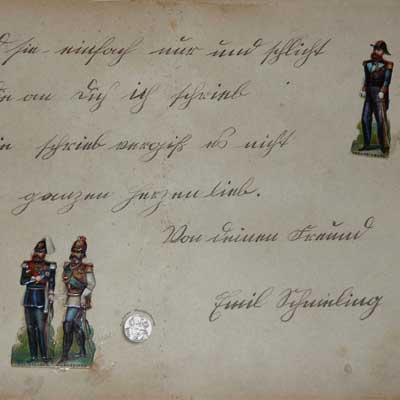 sie einfach nur und schlicht
an Dich ich schrieb
schrieb vergiß es nicht
ganzen Herzen lieb.
Von deinen Freund
Emil Schmeling